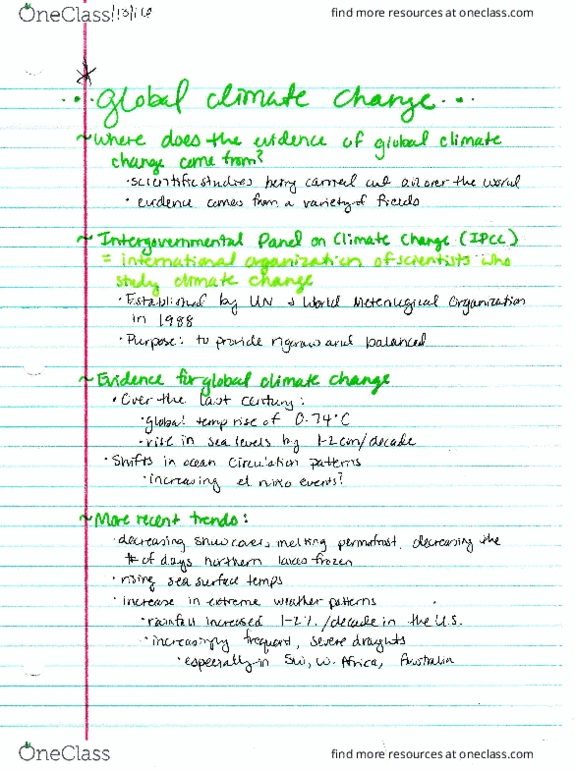 OneClass
find more resources at oneclass.com
* Global climate change
~ Where does the evidence of global climate
change come from?
• scientific studies being carried out all over the world
• evidence comes from a variety of fields
~ Intergovernmental Panel on Climate Change (IPCC)
= international organization of scientists who
study climate change
• Established by UN & World Meterlogical Organization
in 1988
• Purpose: to provide rigorous and balanced
~ Evidence for global climate change
• Over the last century:
• global temp rise of 0.74°C
• rise in sea levels by 1-2cm/decade
• Shifts in ocean circulation patterns
• increasing el nino events?
~ More recent trends:
• decreasing snow cover, melting permafrost, decreasing the
# of days northern lakes frozen
• rising sea surface temps
• increase in extreme weather patterns
• rainfall increased 1-2%/decade in the U.S.
• increasingly frequent, severe draughts
• especially in SW, W. Africa, Australia
OneClass
find more resources at oneclass.com